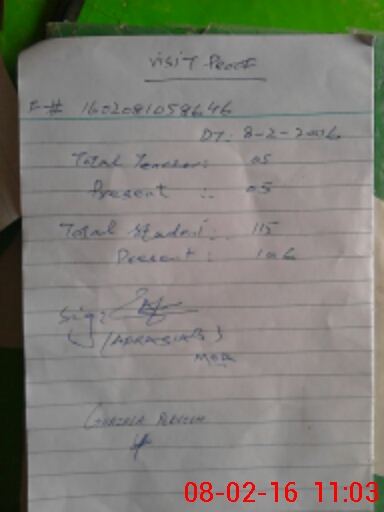 Visit Proof
F-# 1602081059646
DT: 8-2-2016
Total Teacher: 05
Present : 05
Total Student: 115
Present : 106
Sig:
MEA
08-02-16 11:03